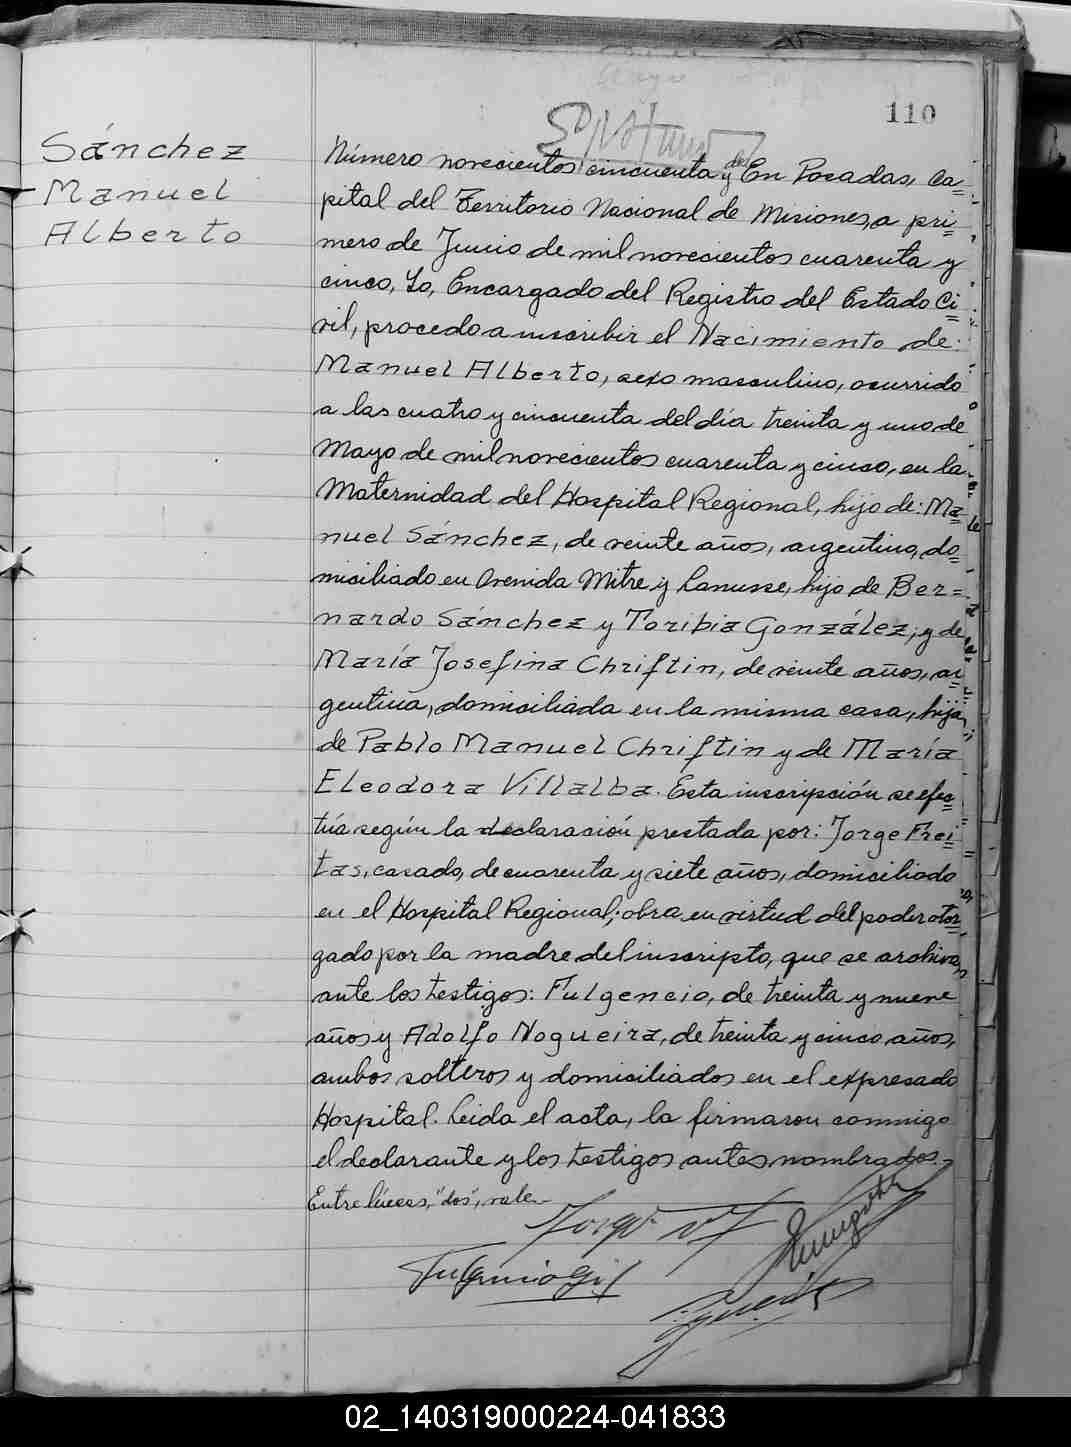 110
Sánchez
Manuel
Alberto
Número novecientos cincuenta y dos En Posadas, Ca=
pital del Territorio Nacional de Misiones, a pri=
mero de Junio de mil novecientos cuarenta y
cinco, Yo, Encargado del Registro del Estado Ci=
vil, procedo a inscribir el Nacimiento de:
Manuel Alberto, sexo masculino, ocurrido
a las cuatro y cincuenta del día treinta y uno de
Mayo de mil novecientos cuarenta y cinco, en la
Maternidad del Hospital Regional, hijo de: Ma=
nuel Sánchez, de veinte años, argentino, do=
miciliado en Avenida Mitre y Lanusse, hijo de Ber=
nardo Sánchez y Toribia González; y de
María Josefina Chriftin, de veinte años, ar=
gentina, domiciliada en la misma casa, hija
de Pablo Manuel Chriftin y de María
Eleodora Villalba. Esta inscripción se efec=
túa según la declaración prestada por: Jorge Frei=
tas, casado, de cuarenta y siete años, domiciliado
en el Hospital Regional; obra en virtud del poder otor=
gado por la madre del inscripto, que se archiva,
ante los testigos: Fulgencio, de treinta y nueve
años y Adolfo Nogueira, de treinta y cinco años,
ambos solteros y domiciliados en el expresado
Hospital. Leida el acta, la firmaron conmigo
el declarante y los testigos antes nombrados.
Entre líneas, "dos", vale.
Fulgencio Gil
02_140319000224-041833